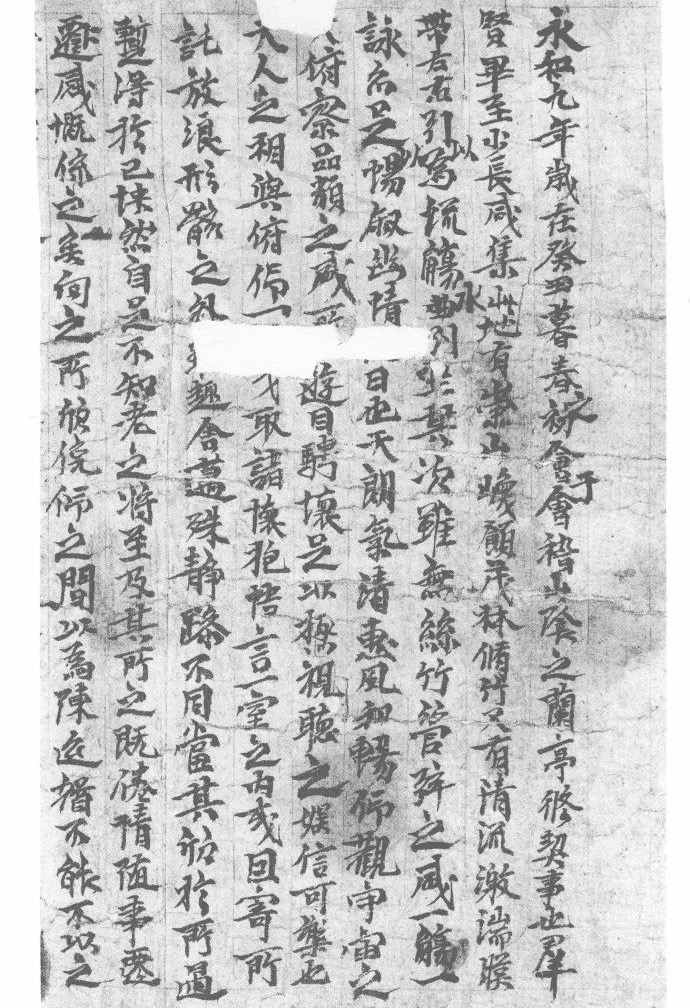 永和九年歲在癸丑暮春之初會于會稽山陰之蘭亭脩契事也群
賢畢至少長咸集此地有崇山峻嶺茂林脩竹又有清流激湍暎
帶左右引以爲流觴曲水列坐其次雖無絲竹管弦之盛一觴一
詠亦足以暢叙幽情日也天朗氣清惠風和暢仰觀宇宙之
俯察品類之盛所遊目騁懷足以極視聽之娛信可樂也
夫人之相與俯仰一或取諸懷抱悟言一室之内或因寄所
託放浪形骸之趣舍萬殊静躁不同當其欣於所遇
蹔得於己怏然自足不知老之將至及其所之既倦情隨事遷
感慨係之矣向之所欣俛仰之間以爲陳迹猶不能不以之